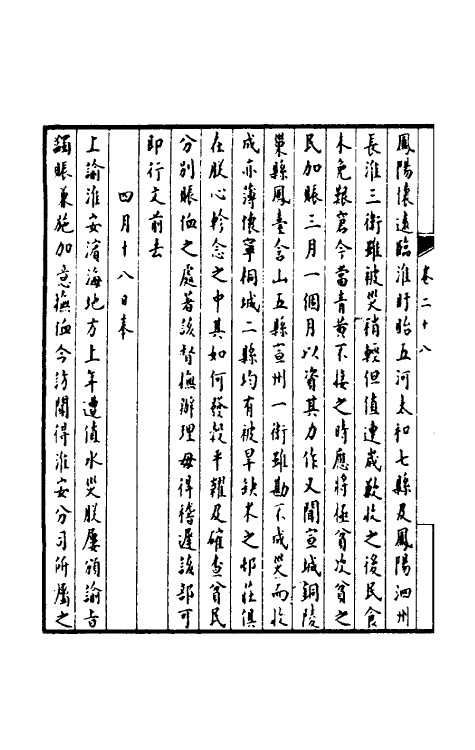 卷二十八
鳳陽懷遠臨淮盱眙五河太和七縣及鳳陽泗州
長淮三衛雖被災稍輕但值連歲歉收之後民食
未免艱窘今當青黃不接之時應將極貧次貧之
民加賑三月一個月以資其力作又聞宣城銅陵
巢縣鳳臺含山五縣宣州一衛雖勘不成災而收
成亦薄懷寧桐城二縣均有被旱缺米之邨莊俱
在朕心軫念之中其如何發穀平糶及確查貧民
分別賑恤之處著該督撫辦理毋得稽遲該部可
即行文前去
四月十八日奉
上諭淮安濱海地方上年遭值水災朕屢頒諭旨
蠲賑兼施加意撫恤今訪聞得淮安分司所屬之